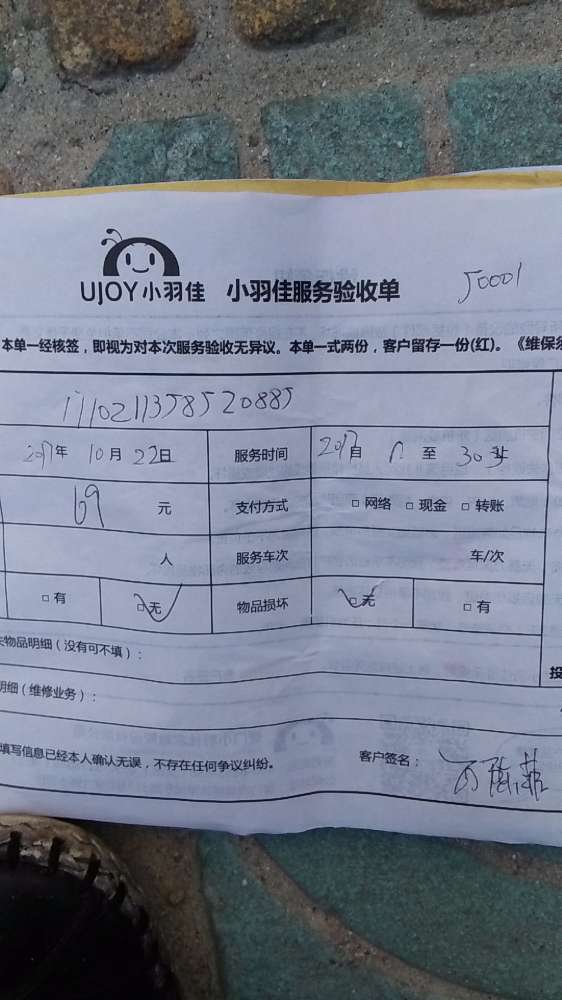 UJOY小羽佳 小羽佳服务验收单 J0001
本单一经核签，即视为对本次服务验收无异议。本单一式两份，客户留存一份(红)。《维保须
1110211358520885
2017年 10月 22日 服务时间 自 至
69 元 支付方式 □ 网络 □ 现金 □ 转账
人 服务车次 车/次
□ 有 □ 无 物品损坏 □ 无 □ 有
失物品明细（没有可不填）：
投
明细（维修业务）：
填写信息已经本人确认无误，不存在任何争议纠纷。 客户签名：